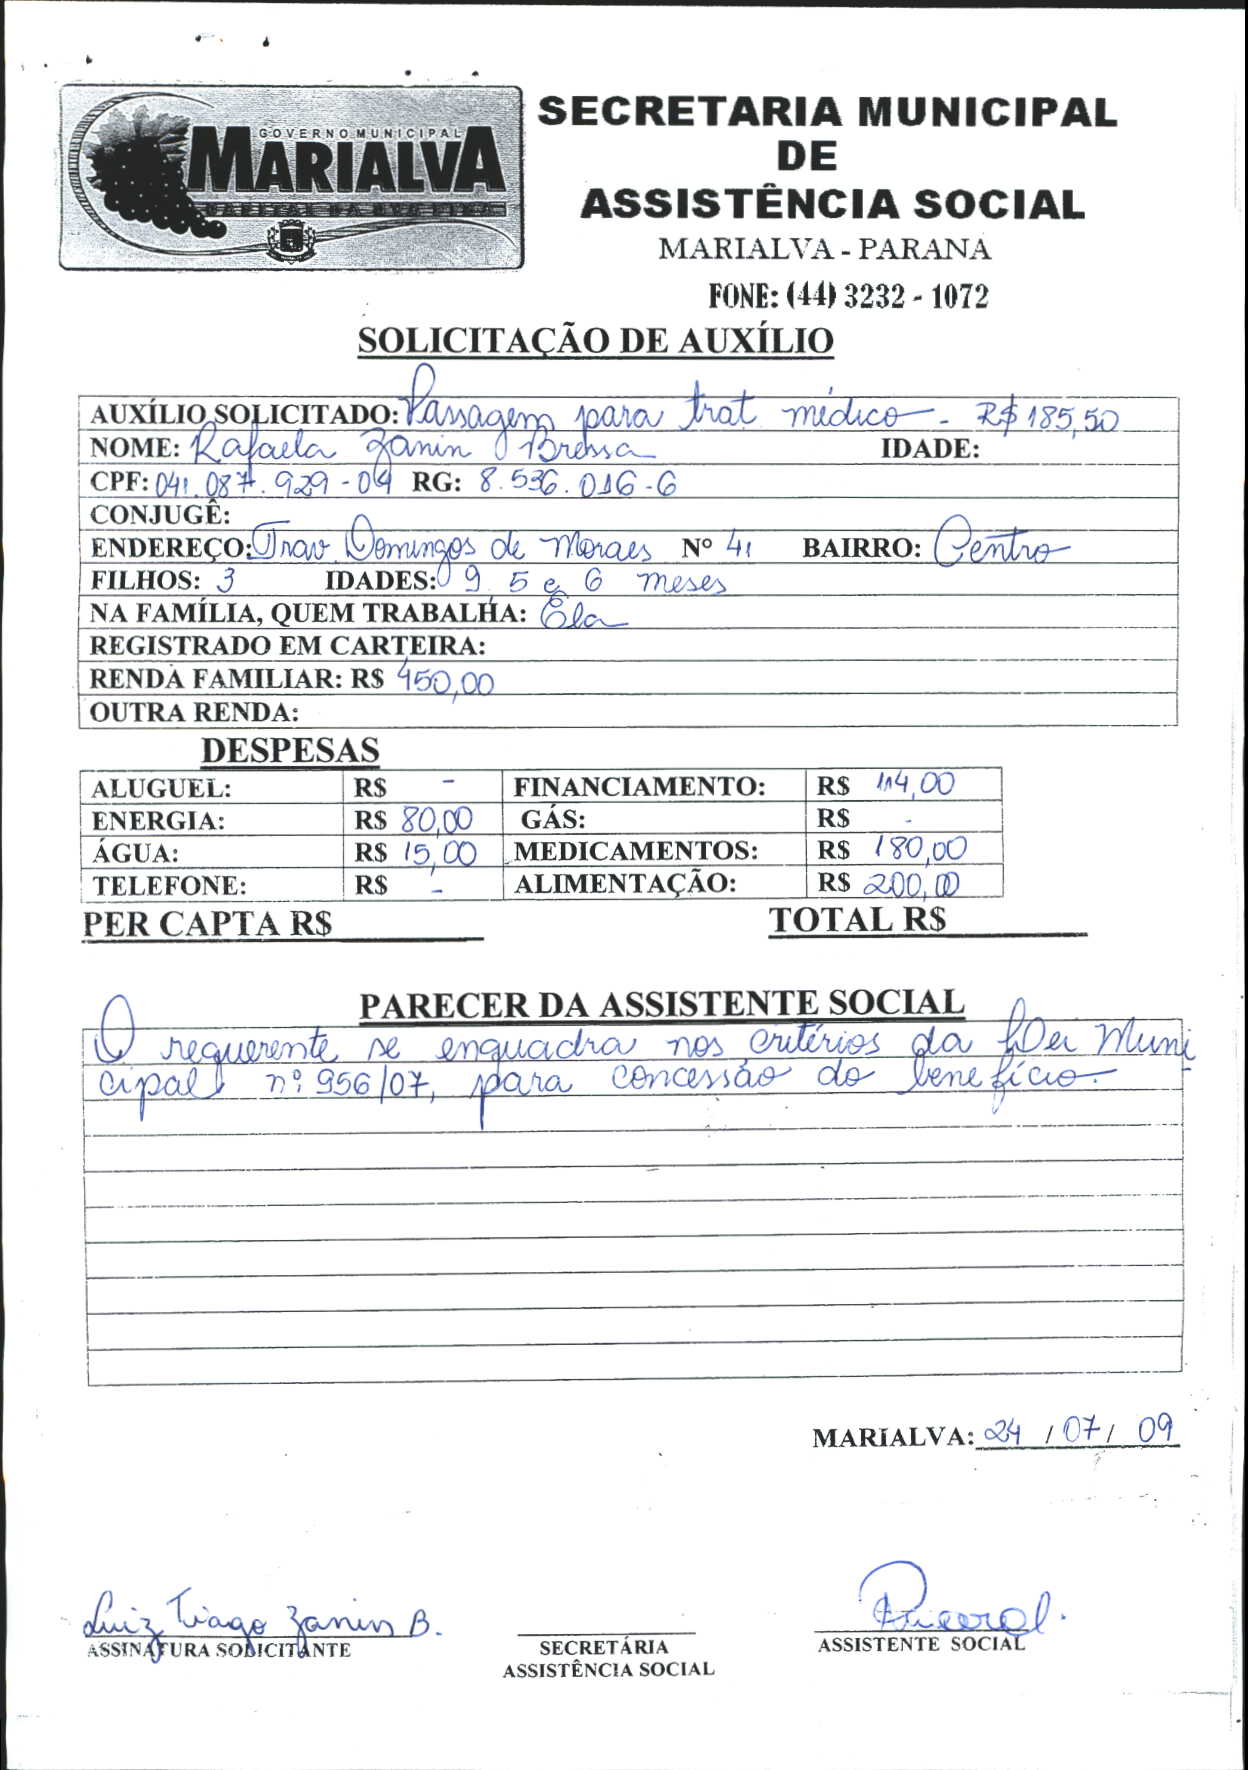 GOVERNO MUNICIPAL
MARIALVA
SECRETARIA MUNICIPAL
DE
ASSISTÊNCIA SOCIAL
MARIALVA - PARANA
FONE: (44) 3232 - 1072
SOLICITAÇÃO DE AUXÍLIO
AUXÍLIO SOLICITADO: Passagem para trat médico - R$ 185,50
NOME: Rafaela Zanin Bressa IDADE:
CPF: 041.087.929-09 RG: 8.536.016-6
CONJUGÊ:
ENDEREÇO: Trav Domingos de Moraes Nº 41 BAIRRO: Centro
FILHOS: 3 IDADES: 9 5 e 6 meses
NA FAMÍLIA, QUEM TRABALHA: Ela
REGISTRADO EM CARTEIRA:
RENDA FAMILIAR: R$ 450,00
OUTRA RENDA:
DESPESAS
ALUGUEL: R$ - FINANCIAMENTO: R$ 114,00
ENERGIA: R$ 80,00 GÁS: R$ -
ÁGUA: R$ 15,00 MEDICAMENTOS: R$ 180,00
TELEFONE: R$ - ALIMENTAÇÃO: R$ 200,00
PER CAPTA R$ TOTAL R$
PARECER DA ASSISTENTE SOCIAL
O requerente se enquadra nos critérios da Lei Muni
cipal nº 956/07, para concessão do benefício.
MARIALVA: 24 / 07 / 09
Luiz Tiago Zanin B.
ASSINATURA SOLICITANTE
SECRETÁRIA
ASSISTÊNCIA SOCIAL
ASSISTENTE SOCIAL